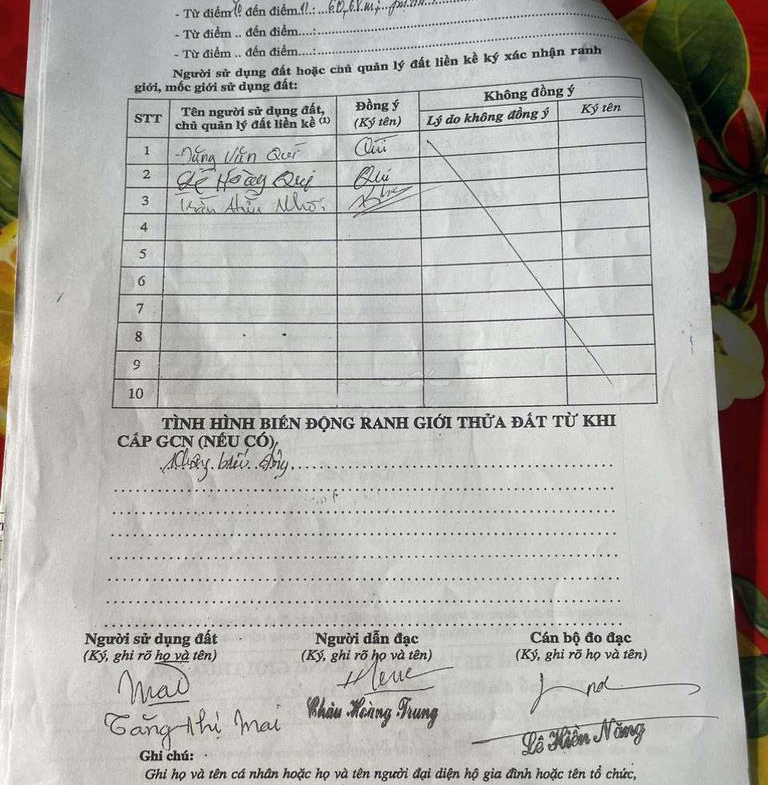 - Từ điểm 10 đến điểm 11.:
- Từ điểm .. đến điểm....:
- Từ điểm .. đến điểm....:
Người sử dụng đất hoặc chủ quản lý đất liền kề ký xác nhận ranh
giới, mốc giới sử dụng đất:
STT Tên người sử dụng đất, chủ quản lý đất liền kề (1) Đồng ý (Ký tên) Không đồng ý
Lý do không đồng ý Ký tên
1 Văn Quí Quí
2 Lê Hoàng Quí Quí
3 Trần
4
5
6
7
8
9
10
TÌNH HÌNH BIẾN ĐỘNG RANH GIỚI THỬA ĐẤT TỪ KHI
CẤP GCN (NẾU CÓ)
Không biến động
Người sử dụng đất Người dẫn đạc Cán bộ đo đạc
(Ký, ghi rõ họ và tên) (Ký, ghi rõ họ và tên) (Ký, ghi rõ họ và tên)
Mai
Tăng Thị Mai Châu Hoàng Trung Lê Hiền Năng
Ghi chú:
Ghi họ và tên cá nhân hoặc họ và tên người đại diện hộ gia đình hoặc tên tổ chức,